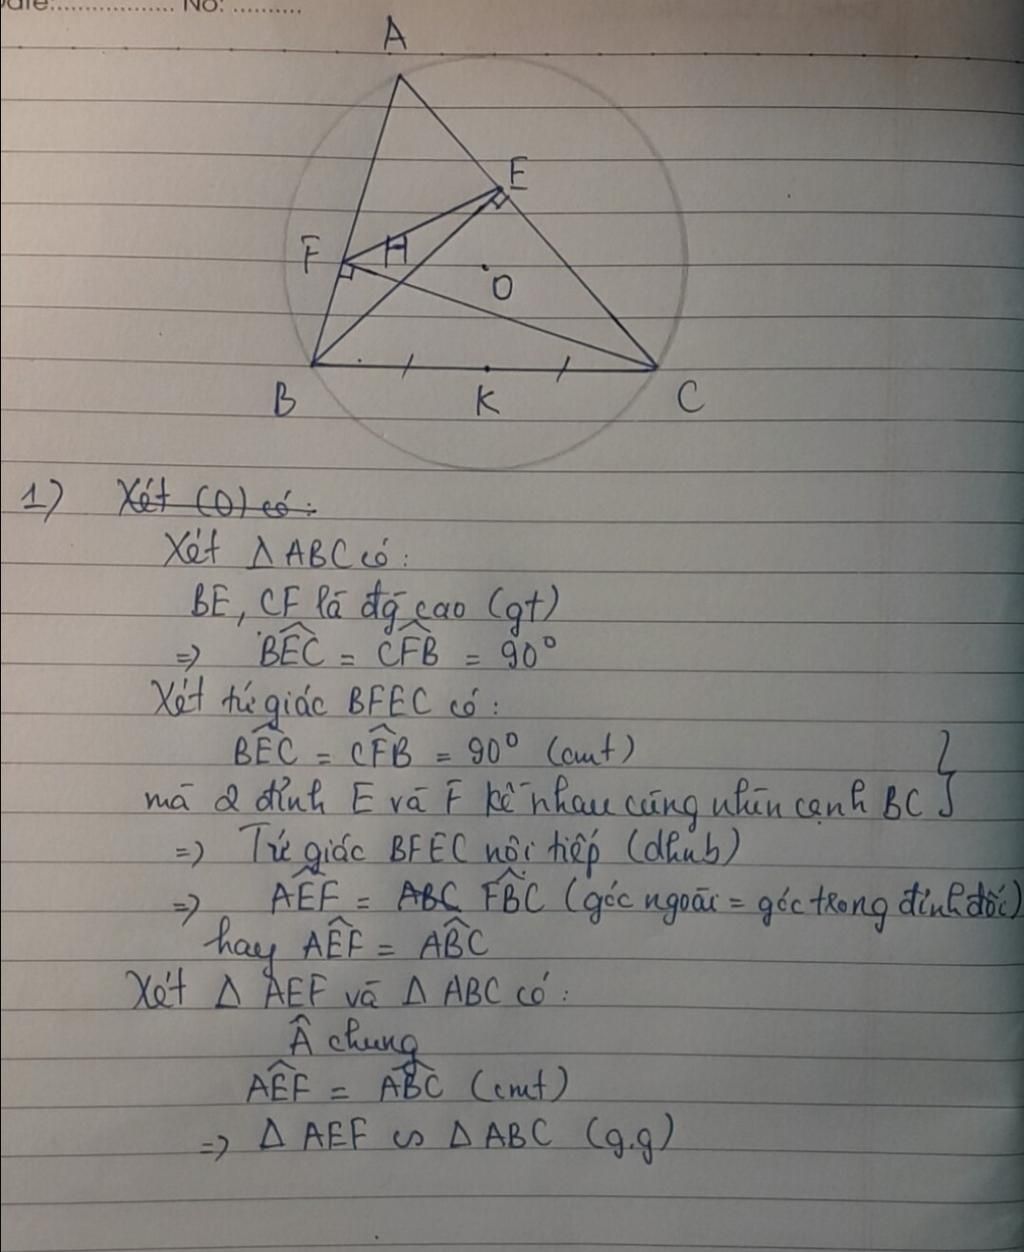 Date:.................. No: ..........
A
E
F
H
O
B
K
C
1) Xét (O) có:
Xét Δ ABC có:
BE, CF là đg cao (gt)
=> BÊC = CF̂B = 90°
Xét tứ giác BFEC có:
BÊC = CF̂B = 90° (cmt)
mà 2 đỉnh E và F kề nhau cùng nhìn cạnh BC }
=> Tứ giác BFEC nội tiếp (dhnb)
=> AÊF = ABC FB̂C (góc ngoài = góc trong đỉnh đối)
hay AÊF = AB̂C
Xét Δ AEF và Δ ABC có:
Â chung
AÊF = AB̂C (cmt)
=> Δ AEF ∽ Δ ABC (g.g)